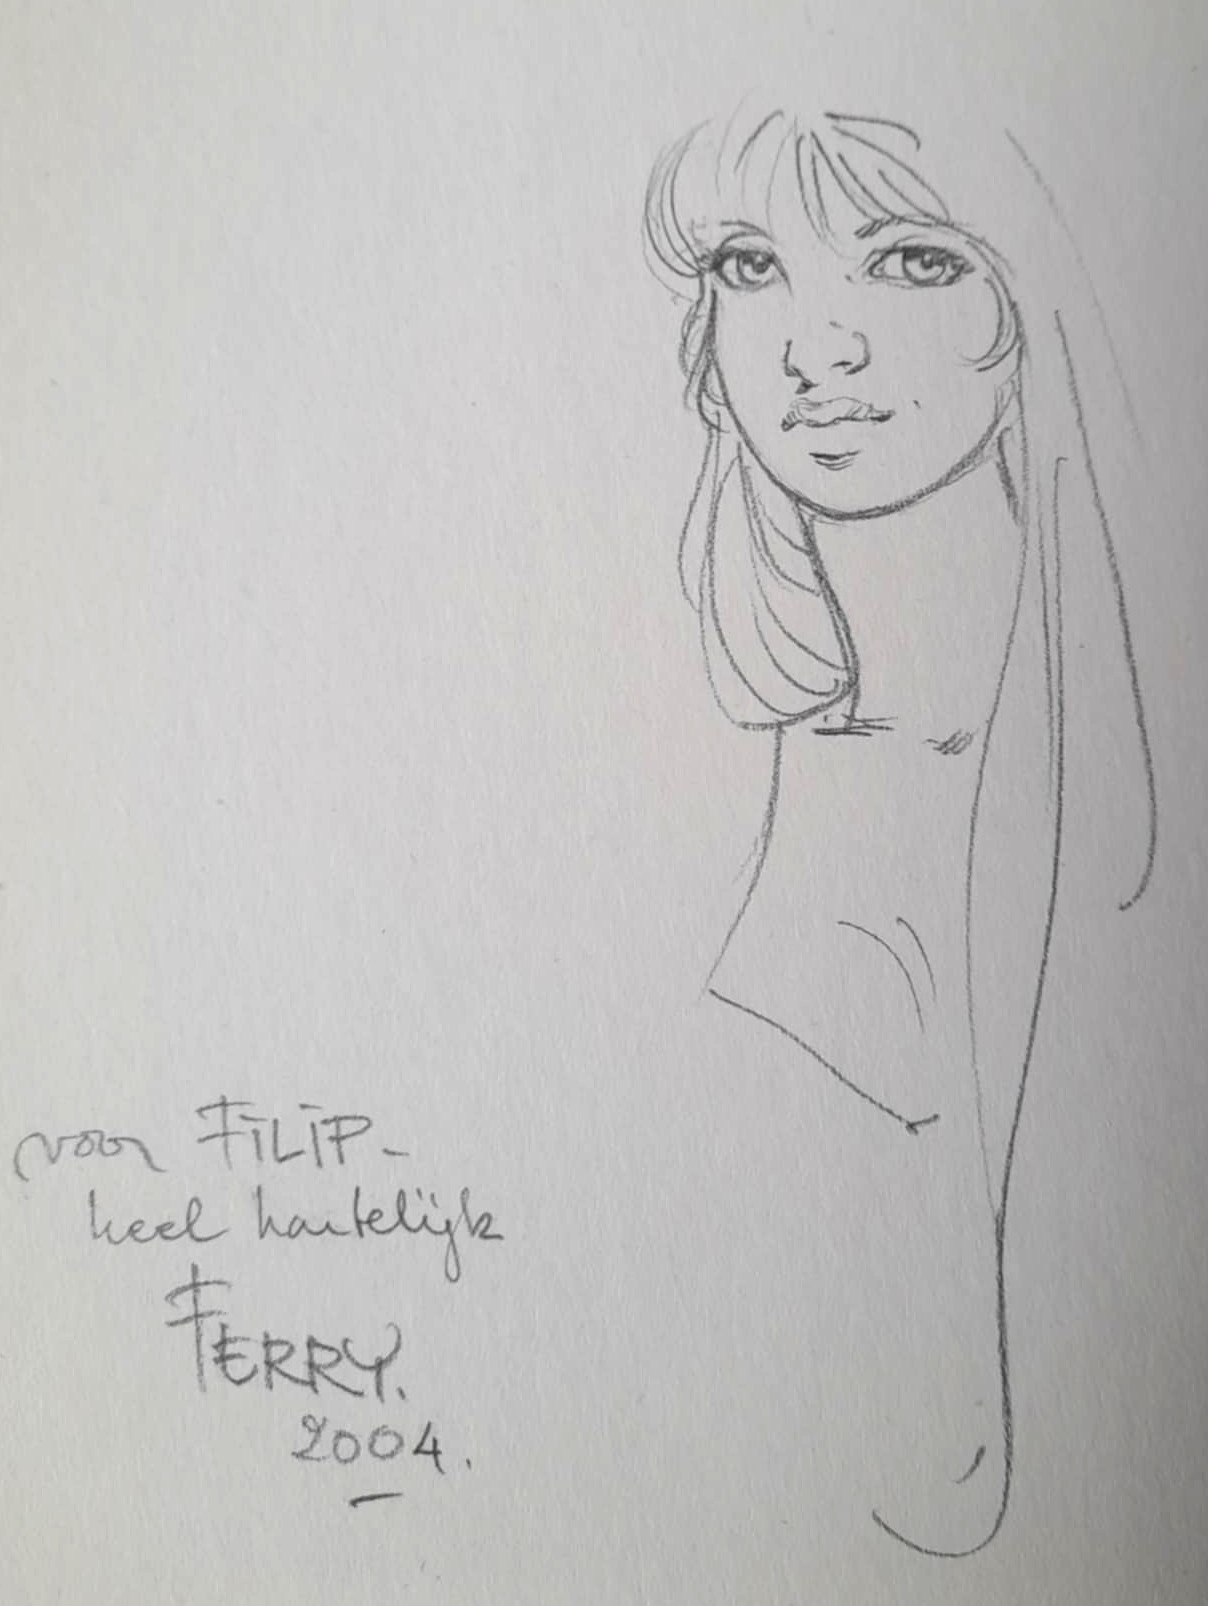 voor FiLiP -
heel hartelijk
FERRY.
2004.